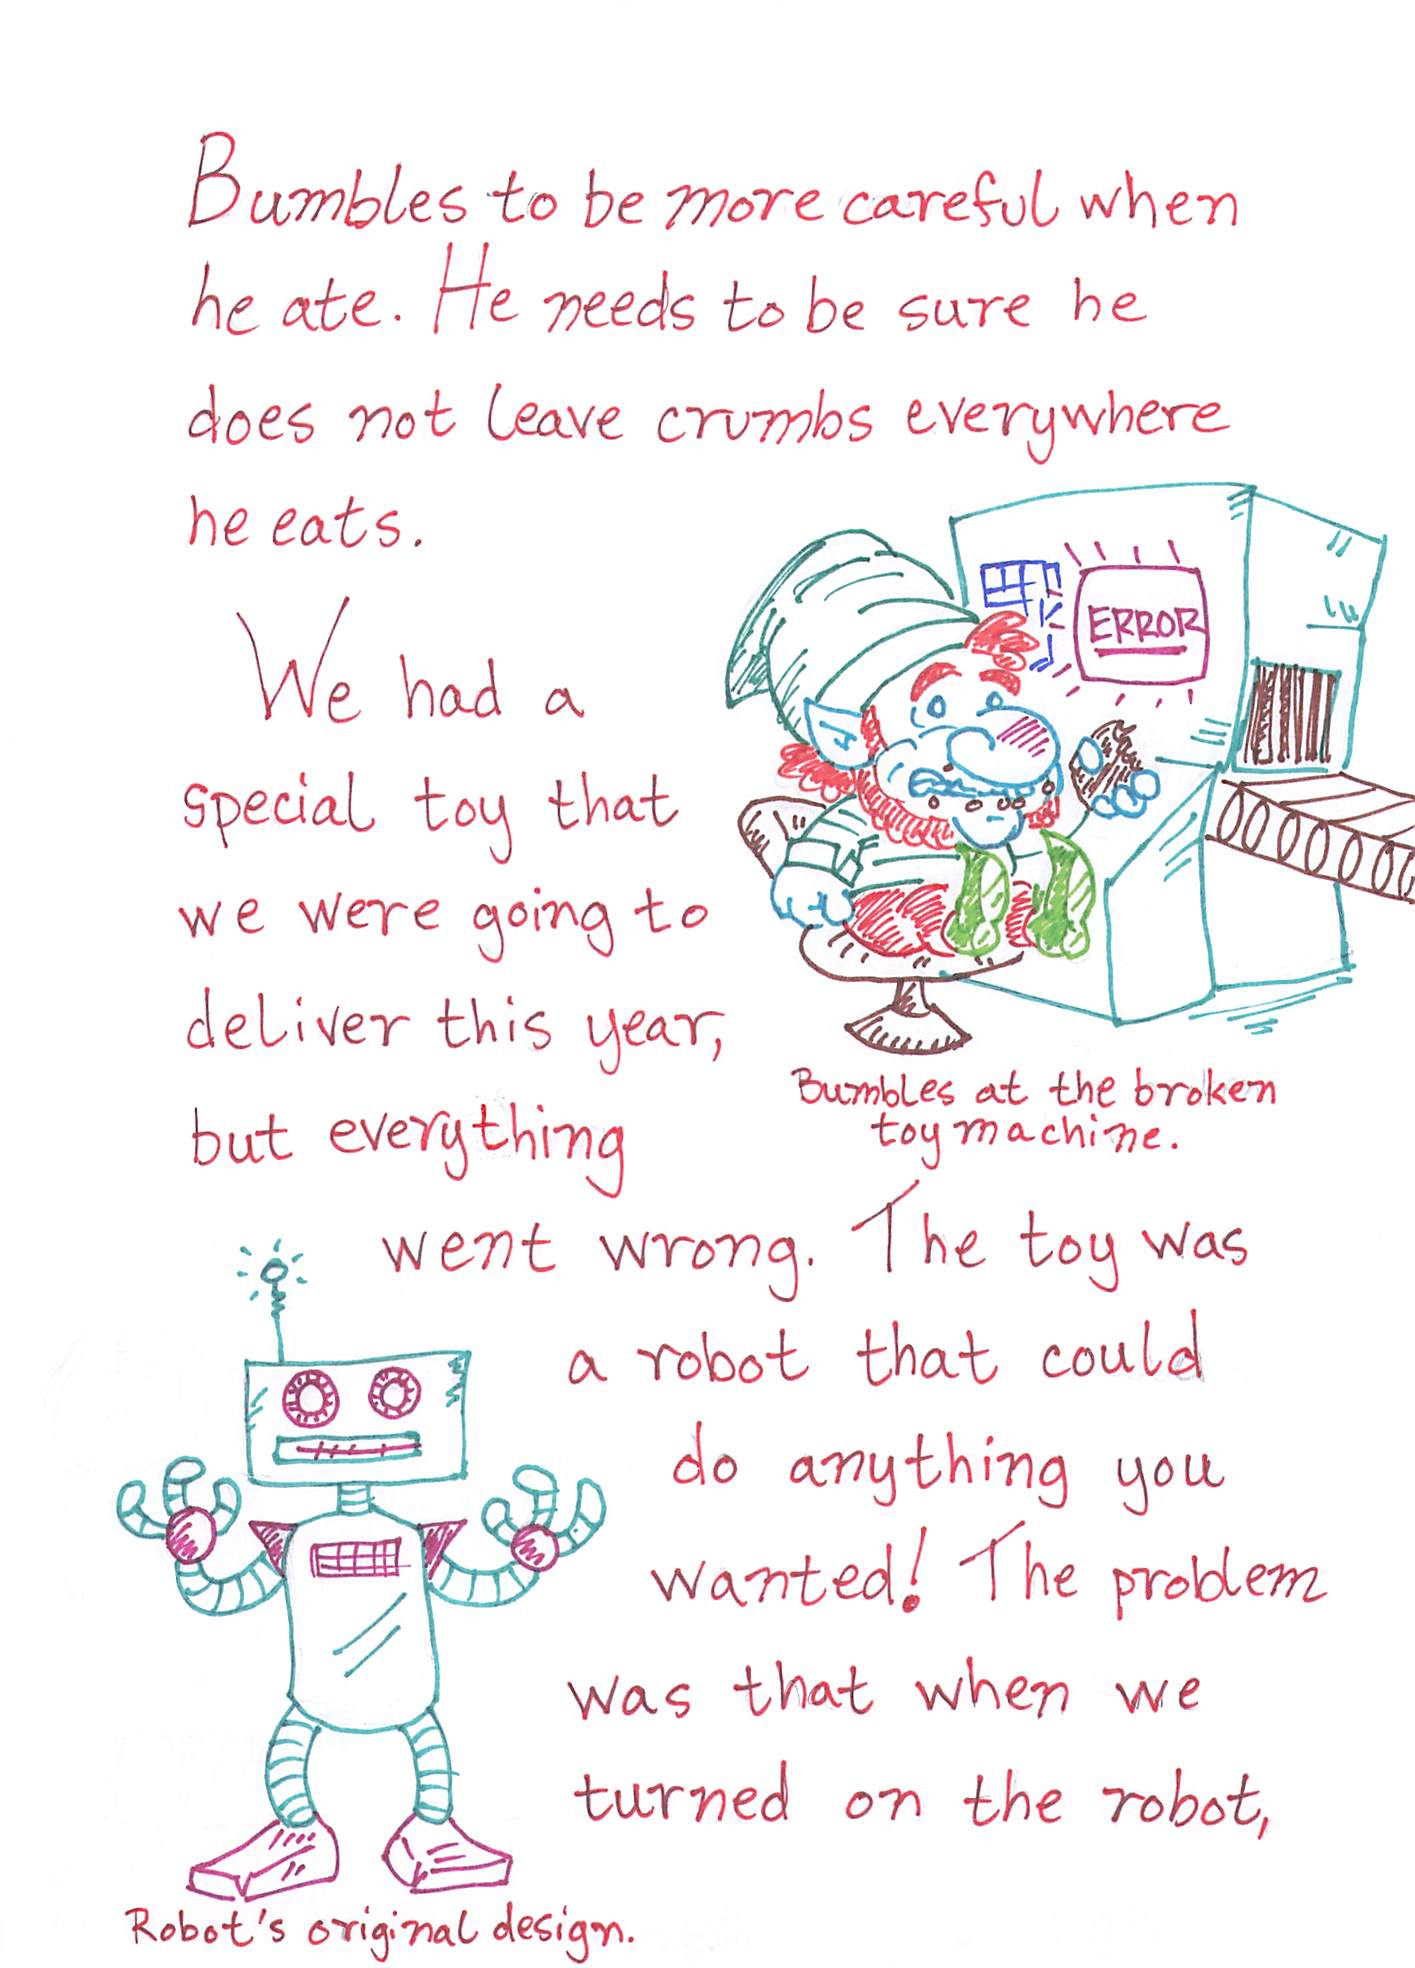 Bumbles to be more careful when
he ate. He needs to be sure he
does not leave crumbs everywhere
he eats.
We had a
special toy that
we were going to
deliver this year,
but everything
ERROR
Bumbles at the broken
toy machine.
went wrong. The toy was
a robot that could
do anything you
wanted! The problem
was that when we
turned on the robot,
Robot's original design.